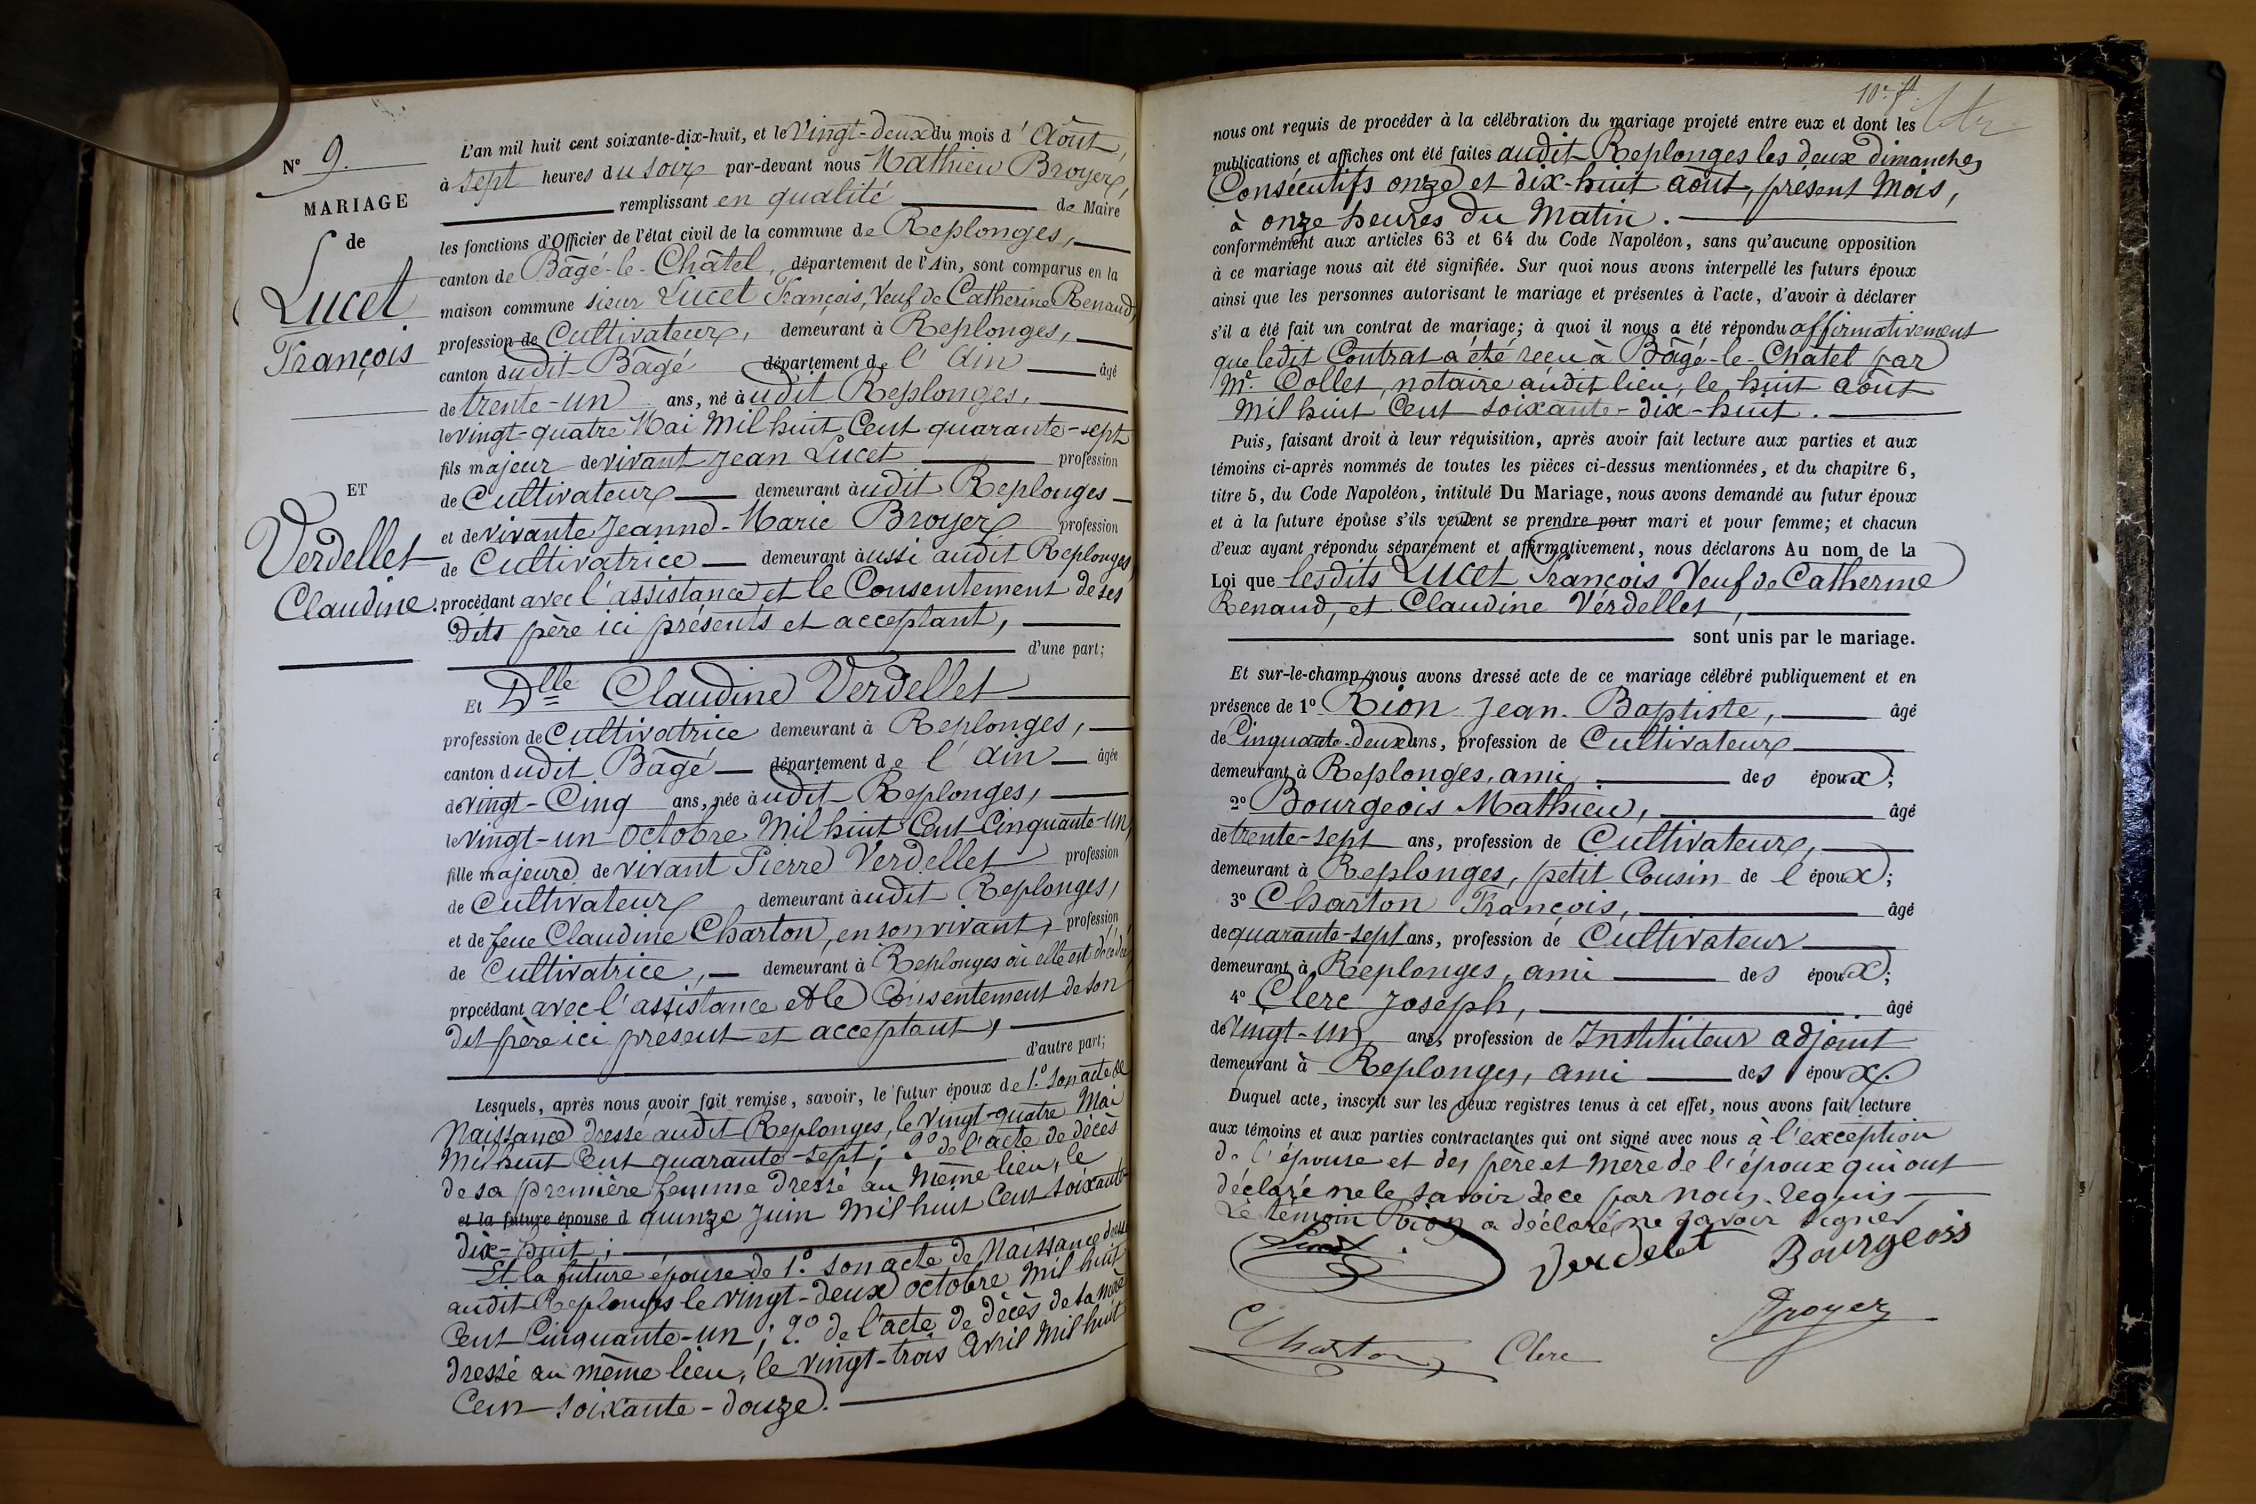 N° 9.
MARIAGE
de
Lucet
François
ET
Verdellet
Claudine.
L'an mil huit cent soixante-dix-huit, et le Vingt-deux du mois d'Août,
à sept heures du soir par-devant nous Mathieu Broyer,
remplissant en qualité de Maire
les fonctions d'Officier de l'état civil de la commune de Replonges,
canton de Bâgé-le-Châtel, département de l'Ain, sont comparus en la
maison commune sieur Lucet François, Veuf de Catherine Renaud,
profession de Cultivateur, demeurant à Replonges,
canton dudit Bâgé département de l'Ain âgé
de trente-un ans, né àudit Replonges,
le vingt-quatre Mai Mil huit Cent quarante-sept
fils majeur de vivant Jean Lucet profession
de Cultivateur demeurant àudit Replonges
et de vivante Jeanne-Marie Broyer profession
de Cultivatrice demeurant àussi audit Replonges,
procédant avec l'assistance et le Consentement de ses
dits père ici présents et acceptant,
d'une part;
Et Dlle Claudine Verdellet
profession de Cultivatrice demeurant à Replonges,
canton dudit Bâgé département de l'Ain âgée
de vingt-Cinq ans, née àudit Replonges,
le vingt-un Octobre Mil huit Cent Cinquante-un,
fille majeure de vivant Pierre Verdellet profession
de Cultivateur demeurant àudit Replonges,
et de feue Claudine Charton, en son vivant, profession
de Cultivatrice, demeurant à Replonges où elle est décédée,
procédant avec l'assistance et le Consentement de son
dit père ici présent et acceptant,
d'autre part;
Lesquels, après nous avoir fait remise, savoir, le futur époux de 1.° son acte de
Naissance dressé audit Replonges, le vingt-quatre Mai
Mil huit Cent quarante-sept; 2° de l'acte de décès
de sa première femme dressé au Même lieu, le
et la future épouse d quinze Juin Mil huit Cent soixante-
dix-huit;
Et la future épouse de 1.° son acte de Naissance dressé
audit Replonges le vingt-deux octobre Mil huit
Cent Cinquante-un; 2.° de l'acte de décès de sa mère
dressé au même lieu, le vingt-trois Avril Mil huit
Cent soixante-douze.
10e f.
nous ont requis de procéder à la célébration du mariage projeté entre eux et dont les
publications et affiches ont été faites audit Replonges les deux dimanches
Consécutifs onze et dix-huit août, présent Mois,
à onze heures du Matin.
conformément aux articles 63 et 64 du Code Napoléon, sans qu'aucune opposition
à ce mariage nous ait été signifiée. Sur quoi nous avons interpellé les futurs époux
ainsi que les personnes autorisant le mariage et présentes à l'acte, d'avoir à déclarer
s'il a été fait un contrat de mariage; à quoi il nous a été répondu affirmativement
que ledit Contrat a été reçu à Bâgé-le-Chatel par
Me. Collet, notaire audit lieu, le huit août
Mil huit Cent soixante-dix-huit.
Puis, faisant droit à leur réquisition, après avoir fait lecture aux parties et aux
témoins ci-après nommés de toutes les pièces ci-dessus mentionnées, et du chapitre 6,
titre 5, du Code Napoléon, intitulé Du Mariage, nous avons demandé au futur époux
et à la future épouse s'ils veulent se prendre pour mari et pour femme; et chacun
d'eux ayant répondu séparément et affirmativement, nous déclarons Au nom de la
Loi que lesdits Lucet François Veuf de Catherine
Renaud, et Claudine Verdellet,
sont unis par le mariage.
Et sur-le-champ nous avons dressé acte de ce mariage célébré publiquement et en
présence de 1° Rion Jean-Baptiste, âgé
de Cinquante-deux ans, profession de Cultivateur
demeurant à Replonges, ami des époux;
2° Bourgeois Mathieu, âgé
de trente-sept ans, profession de Cultivateur,
demeurant à Replonges, petit Cousin de l'époux;
3° Charton François, âgé
de quarante-sept ans, profession de Cultivateur
demeurant à Replonges, ami des époux;
4° Clerc Joseph, âgé
de Vingt-un ans, profession de Instituteur adjoint
demeurant à Replonges, ami des époux.
Duquel acte, inscrit sur les deux registres tenus à cet effet, nous avons fait lecture
aux témoins et aux parties contractantes qui ont signé avec nous à l'exception
de l'épouse et des père et Mère de l'époux qui ont
déclaré ne le savoir de ce par nous requis
Le témoin Rion a déclaré ne savoir signer
Lucet Verdelet Bourgeois
Charton Clerc Broyer